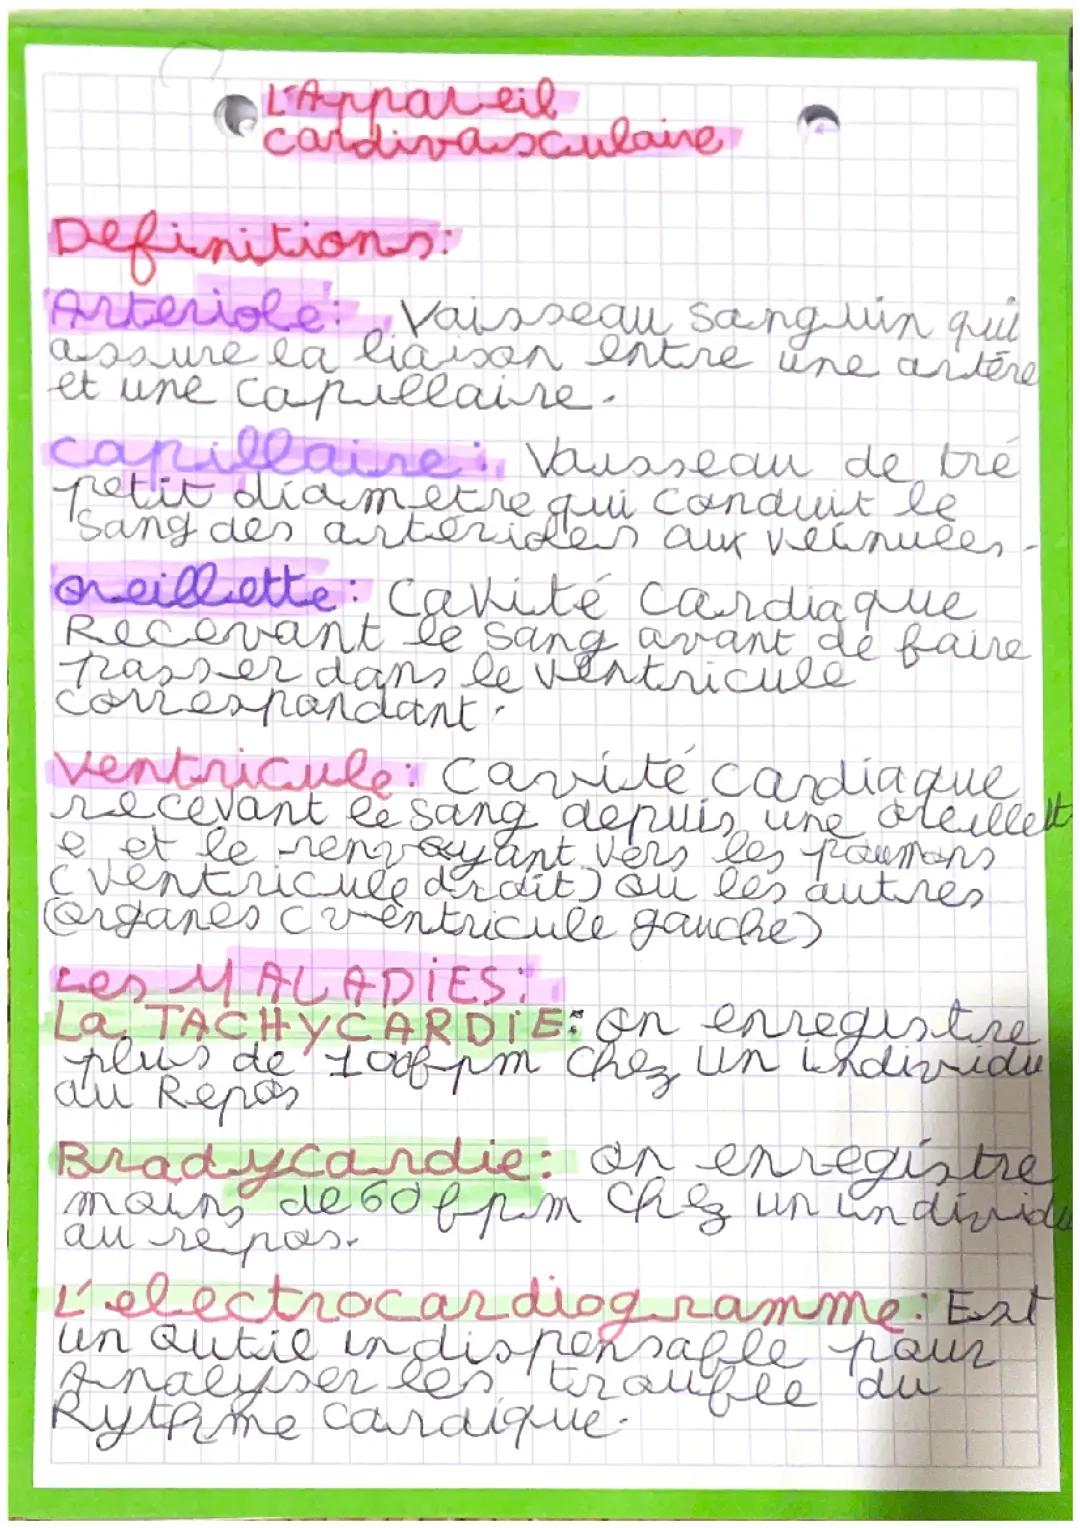 L'Appareil
cardivasculaire
Definitions:
Arteriole: Vaisseau sanguin qui
assure la liaison entre une artère
et une capillaire.
capillaire: Vaisseau de tré
petit diametre qui conduit le
sang des artérioles aux veinules.
oreillette: Cavité cardiaque
Recevant le sang avant de faire
passer dans le ventricule
correspondant.
Ventricule: Cavité cardiaque
recevant le sang depuis une oreillett
e et le renvoyant vers les poumons
(ventricule droit) ou les autres
organes (ventricule gauche)
Les MALADiES:
La TACHYCARDiE: on enregistre
plus de 100bpm chez un individu
au Repos
Bradycardie: on enregistre
moins de 60 bpm chez un individu
au repos.
L'electrocardiogramme: Est
un outil indispensable pour
Analyser les trouble du
Rythme cardique.